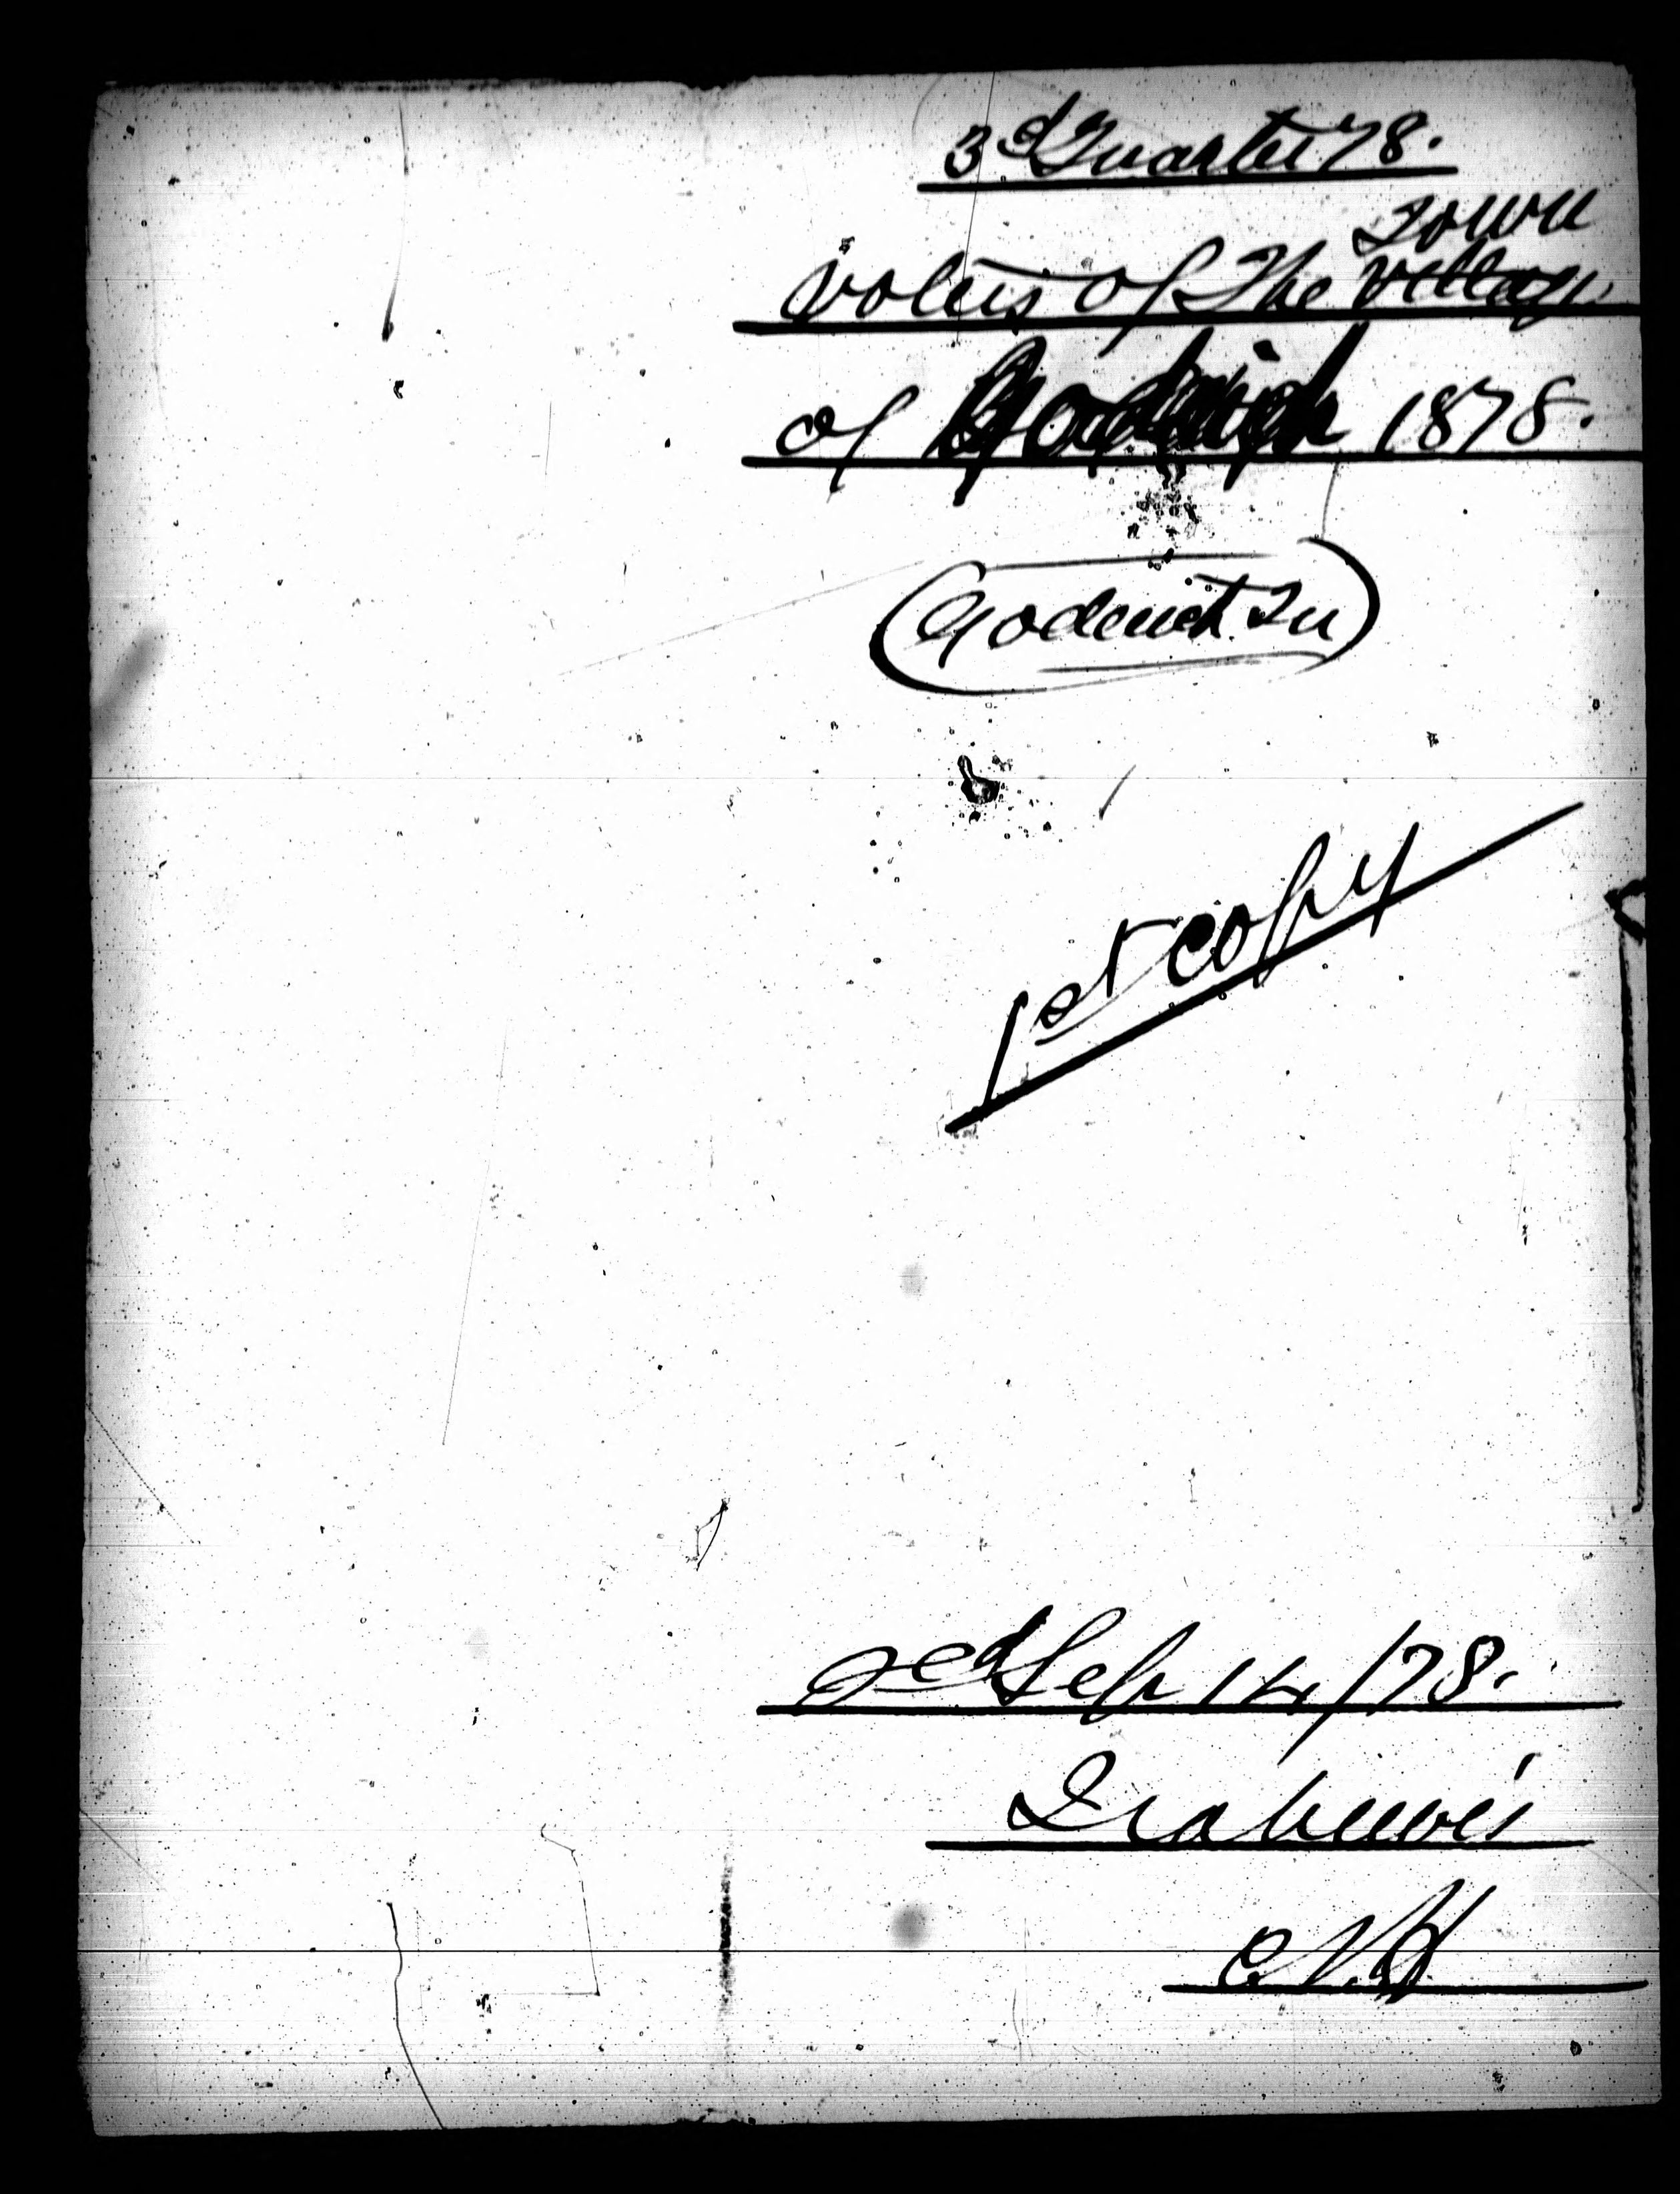 3.d Quarter 78.
Town
Voters of The Village
of Goderich 1878.
Goderich Tn
1st copy
Recd Sep 14/78.